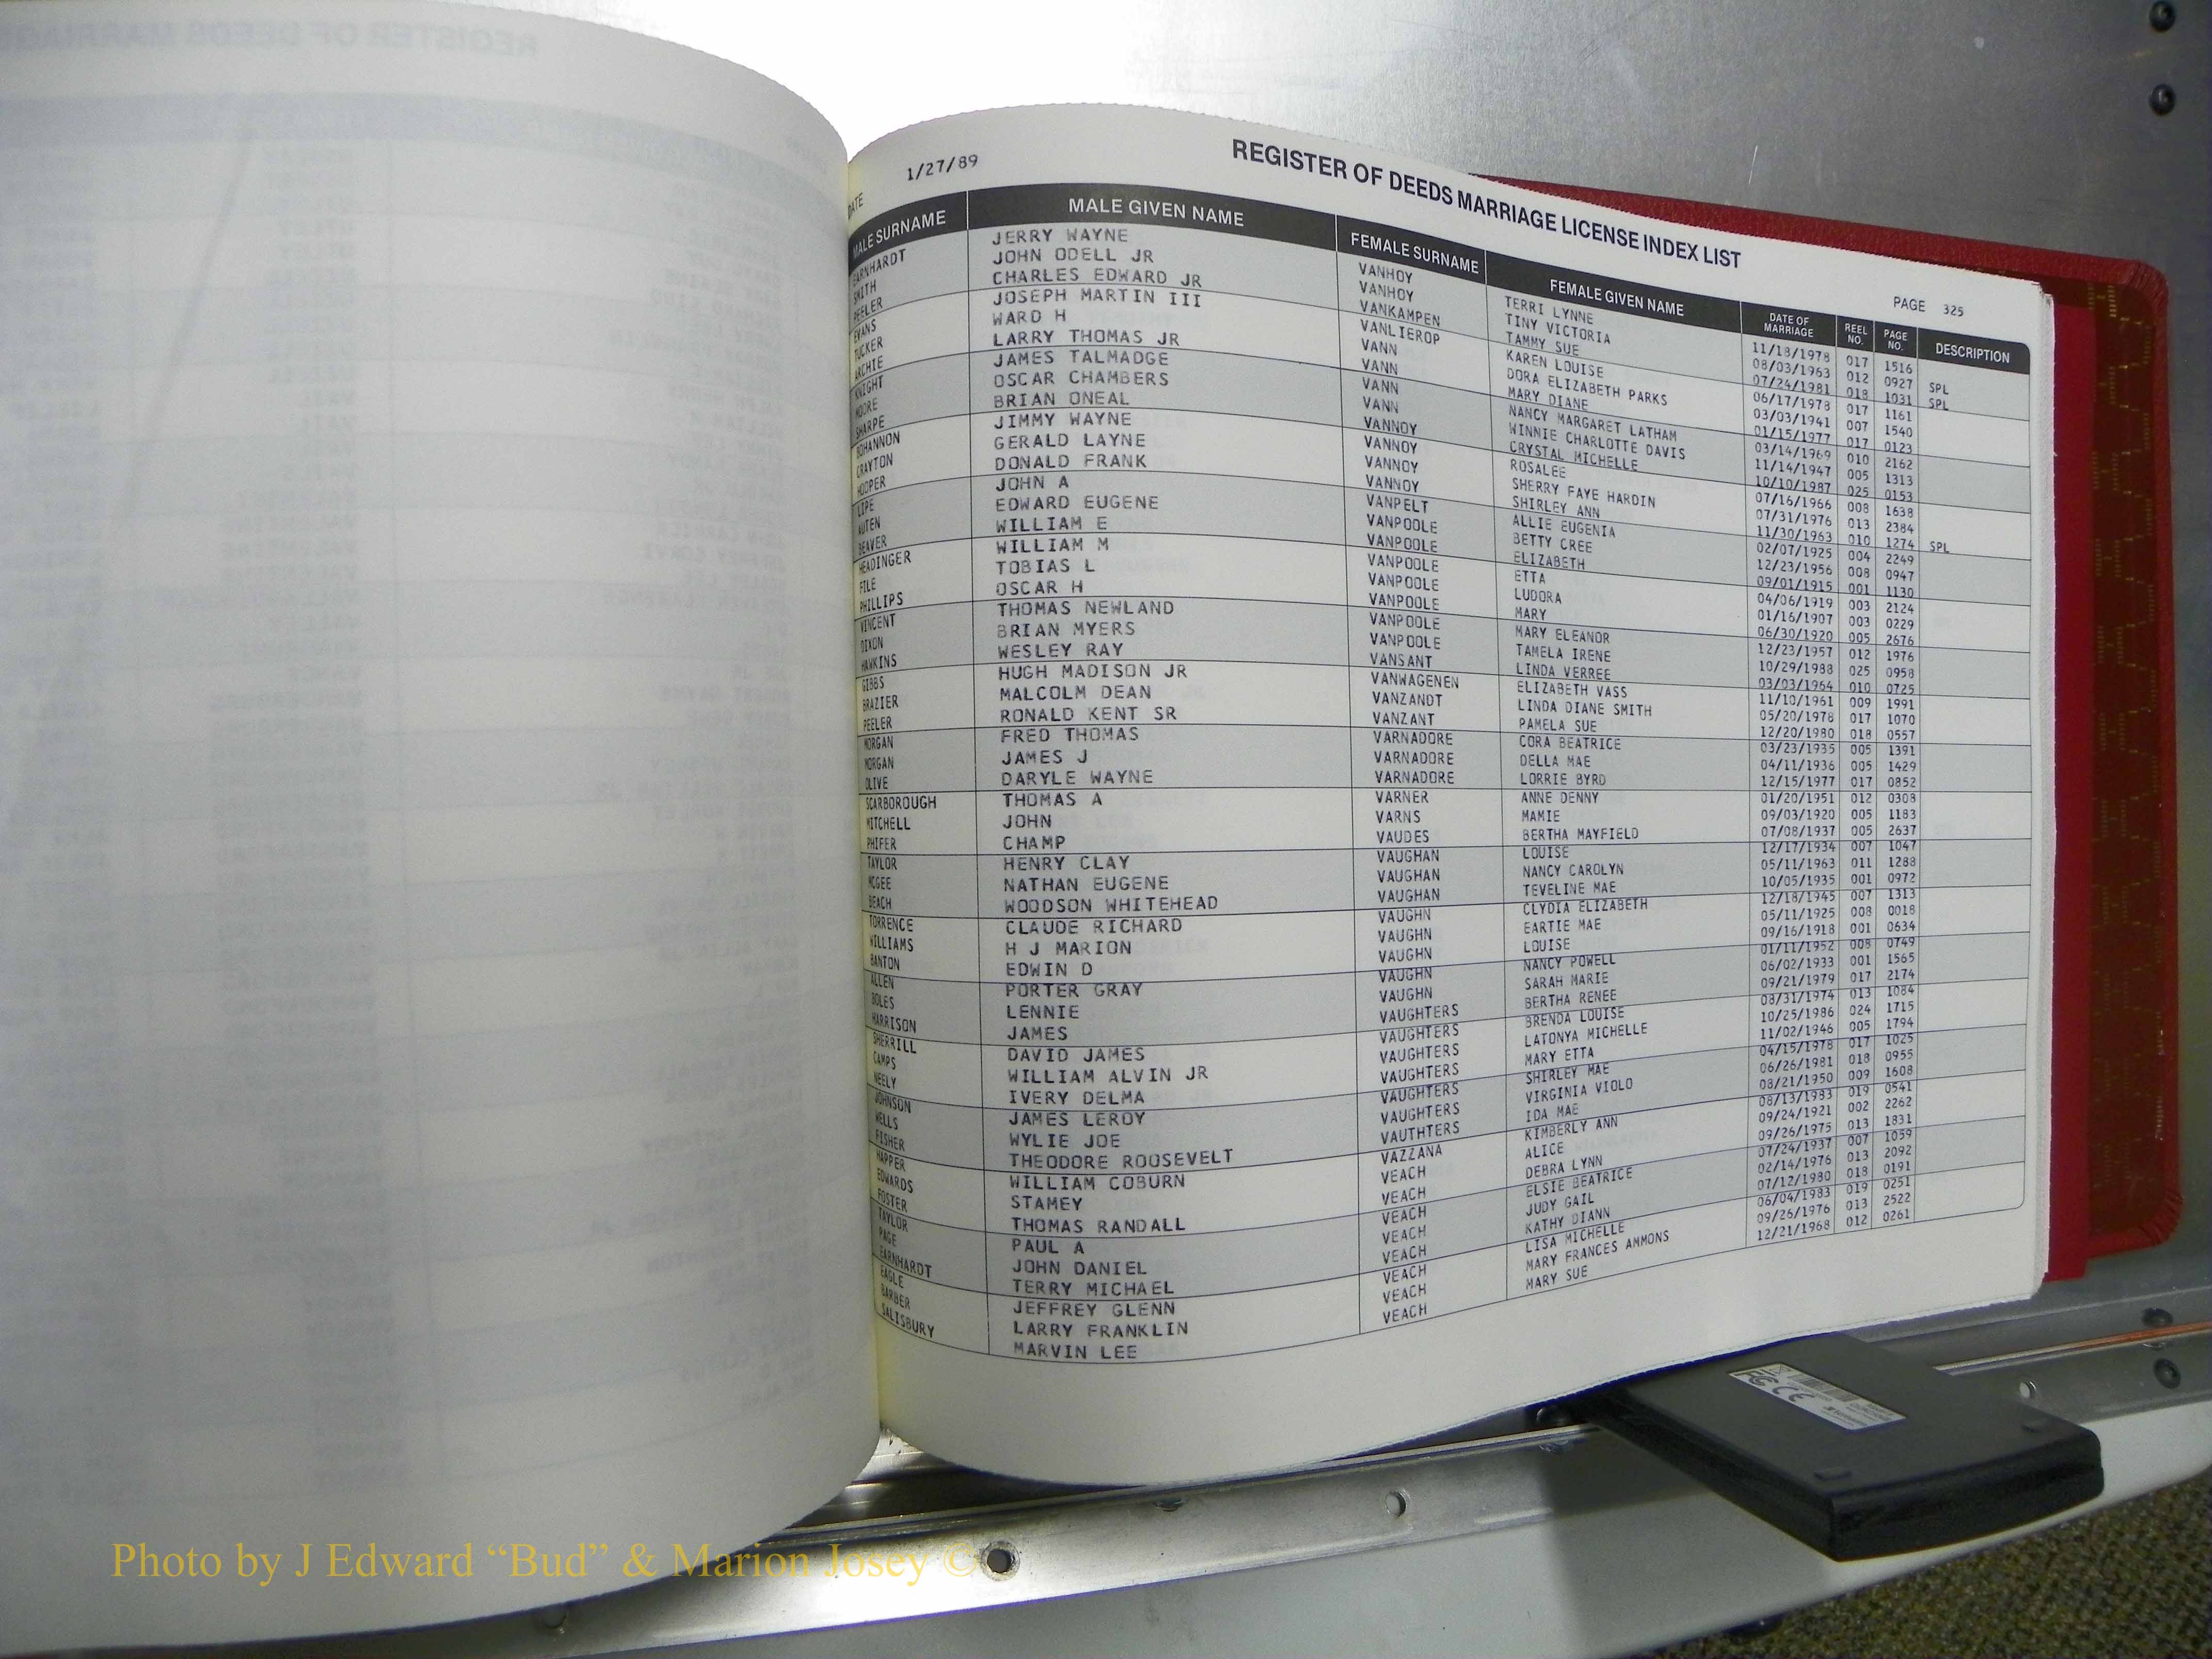 REGISTER OF DEEDS MARRIAGE LICENSE INDEX LIST
DATE 1/27/89 PAGE 325
MALE SURNAME MALE GIVEN NAME FEMALE SURNAME FEMALE GIVEN NAME DATE OF MARRIAGE REEL NO. PAGE NO. DESCRIPTION
EARNHARDT JERRY WAYNE VANHOY TERRI LYNNE 11/18/1978 017 1516
SMITH JOHN ODELL JR VANHOY TINY VICTORIA 08/03/1963 012 0927 SPL
PEELER CHARLES EDWARD JR VANKAMPEN TAMMY SUE 07/24/1981 018 1031 SPL
EVANS JOSEPH MARTIN III VANLIEROP KAREN LOUISE 06/17/1978 017 1161
TUCKER WARD H VANN DORA ELIZABETH PARKS 03/03/1941 007 1540
ARCHIE LARRY THOMAS JR VANN MARY DIANE 01/15/1977 017 0123
KNIGHT JAMES TALMADGE VANN NANCY MARGARET LATHAM 03/14/1969 010 2162
MOORE OSCAR CHAMBERS VANN WINNIE CHARLOTTE DAVIS 11/14/1947 005 1313
SHARPE BRIAN ONEAL VANNOY CRYSTAL MICHELLE 10/10/1987 025 0153
BOHANNON JIMMY WAYNE VANNOY ROSALEE 07/16/1966 008 1638
CRAYTON GERALD LAYNE VANNOY SHERRY FAYE HARDIN 07/31/1976 013 2384
HOOPER DONALD FRANK VANNOY SHIRLEY ANN 11/30/1963 010 1274 SPL
LIPE JOHN A VANPELT ALLIE EUGENIA 02/07/1925 004 2249
AUTEN EDWARD EUGENE VANPOOLE BETTY CREE 12/23/1956 008 0947
BEAVER WILLIAM E VANPOOLE ELIZABETH 09/01/1915 001 1130
HEADINGER WILLIAM M VANPOOLE ETTA 04/06/1919 003 2124
FILE TOBIAS L VANPOOLE LUDORA 01/16/1907 003 0229
PHILLIPS OSCAR H VANPOOLE MARY 06/30/1920 005 2676
VINCENT THOMAS NEWLAND VANPOOLE MARY ELEANOR 12/23/1957 012 1976
DIXON BRIAN MYERS VANPOOLE TAMELA IRENE 10/29/1988 025 0958
HAWKINS WESLEY RAY VANSANT LINDA VERREE 03/03/1964 010 0725
GIBBS HUGH MADISON JR VANWAGENEN ELIZABETH VASS 11/10/1961 009 1991
BRAZIER MALCOLM DEAN VANZANDT LINDA DIANE SMITH 05/20/1978 017 1070
PEELER RONALD KENT SR VANZANT PAMELA SUE 12/20/1980 018 0557
MORGAN FRED THOMAS VARNADORE CORA BEATRICE 03/23/1935 005 1391
MORGAN JAMES J VARNADORE DELLA MAE 04/11/1936 005 1429
OLIVE DARYLE WAYNE VARNADORE LORRIE BYRD 12/15/1977 017 0852
SCARBOROUGH THOMAS A VARNER ANNE DENNY 01/20/1951 012 0308
MITCHELL JOHN VARNS MAMIE 09/03/1920 005 1183
PHIFER CHAMP VAUDES BERTHA MAYFIELD 07/08/1937 005 2637
TAYLOR HENRY CLAY VAUGHAN LOUISE 12/17/1934 007 1047
MCGEE NATHAN EUGENE VAUGHAN NANCY CAROLYN 05/11/1963 011 1288
BEACH WOODSON WHITEHEAD VAUGHAN TEVELINE MAE 10/05/1935 001 0972
TORRENCE CLAUDE RICHARD VAUGHN CLYDIA ELIZABETH 12/18/1945 007 1313
WILLIAMS H J MARION VAUGHN EARTIE MAE 05/11/1925 008 0018
BANTON EDWIN D VAUGHN LOUISE 09/16/1918 001 0634
ALLEN PORTER GRAY VAUGHN NANCY POWELL 01/11/1952 008 0749
BOLES LENNIE VAUGHN SARAH MARIE 06/02/1933 001 1565
HARRISON JAMES VAUGHTERS BERTHA RENEE 09/21/1979 017 2174
SHERRILL DAVID JAMES VAUGHTERS BRENDA LOUISE 08/31/1974 013 1084
CAMPS WILLIAM ALVIN JR VAUGHTERS LATONYA MICHELLE 10/25/1986 024 1715
NEELY IVERY DELMA VAUGHTERS MARY ETTA 11/02/1946 005 1794
JOHNSON JAMES LEROY VAUGHTERS SHIRLEY MAE 04/15/1978 017 1025
WELLS WYLIE JOE VAUGHTERS VIRGINIA VIOLO 06/26/1981 018 0955
FISHER THEODORE ROOSEVELT VAUTHTERS IDA MAE 08/21/1950 009 1608
HAPPER WILLIAM COBURN VAZZANA KIMBERLY ANN 08/13/1983 019 0541
EDWARDS STAMEY VEACH ALICE 09/24/1921 002 2262
FOSTER THOMAS RANDALL VEACH DEBRA LYNN 09/26/1975 013 1831
TAYLOR PAUL A VEACH ELSIE BEATRICE 07/24/1937 007 1059
PAGE JOHN DANIEL VEACH JUDY GAIL 02/14/1976 013 2092
EARNHARDT TERRY MICHAEL VEACH KATHY DIANN 07/12/1980 018 0191
EAGLE JEFFREY GLENN VEACH LISA MICHELLE 06/04/1983 019 0251
BARBER LARRY FRANKLIN VEACH MARY FRANCES AMMONS 09/26/1976 013 2522
SALISBURY MARVIN LEE VEACH MARY SUE 12/21/1968 012 0261
FC CE
Photo by J Edward “Bud” & Marion Josey ©